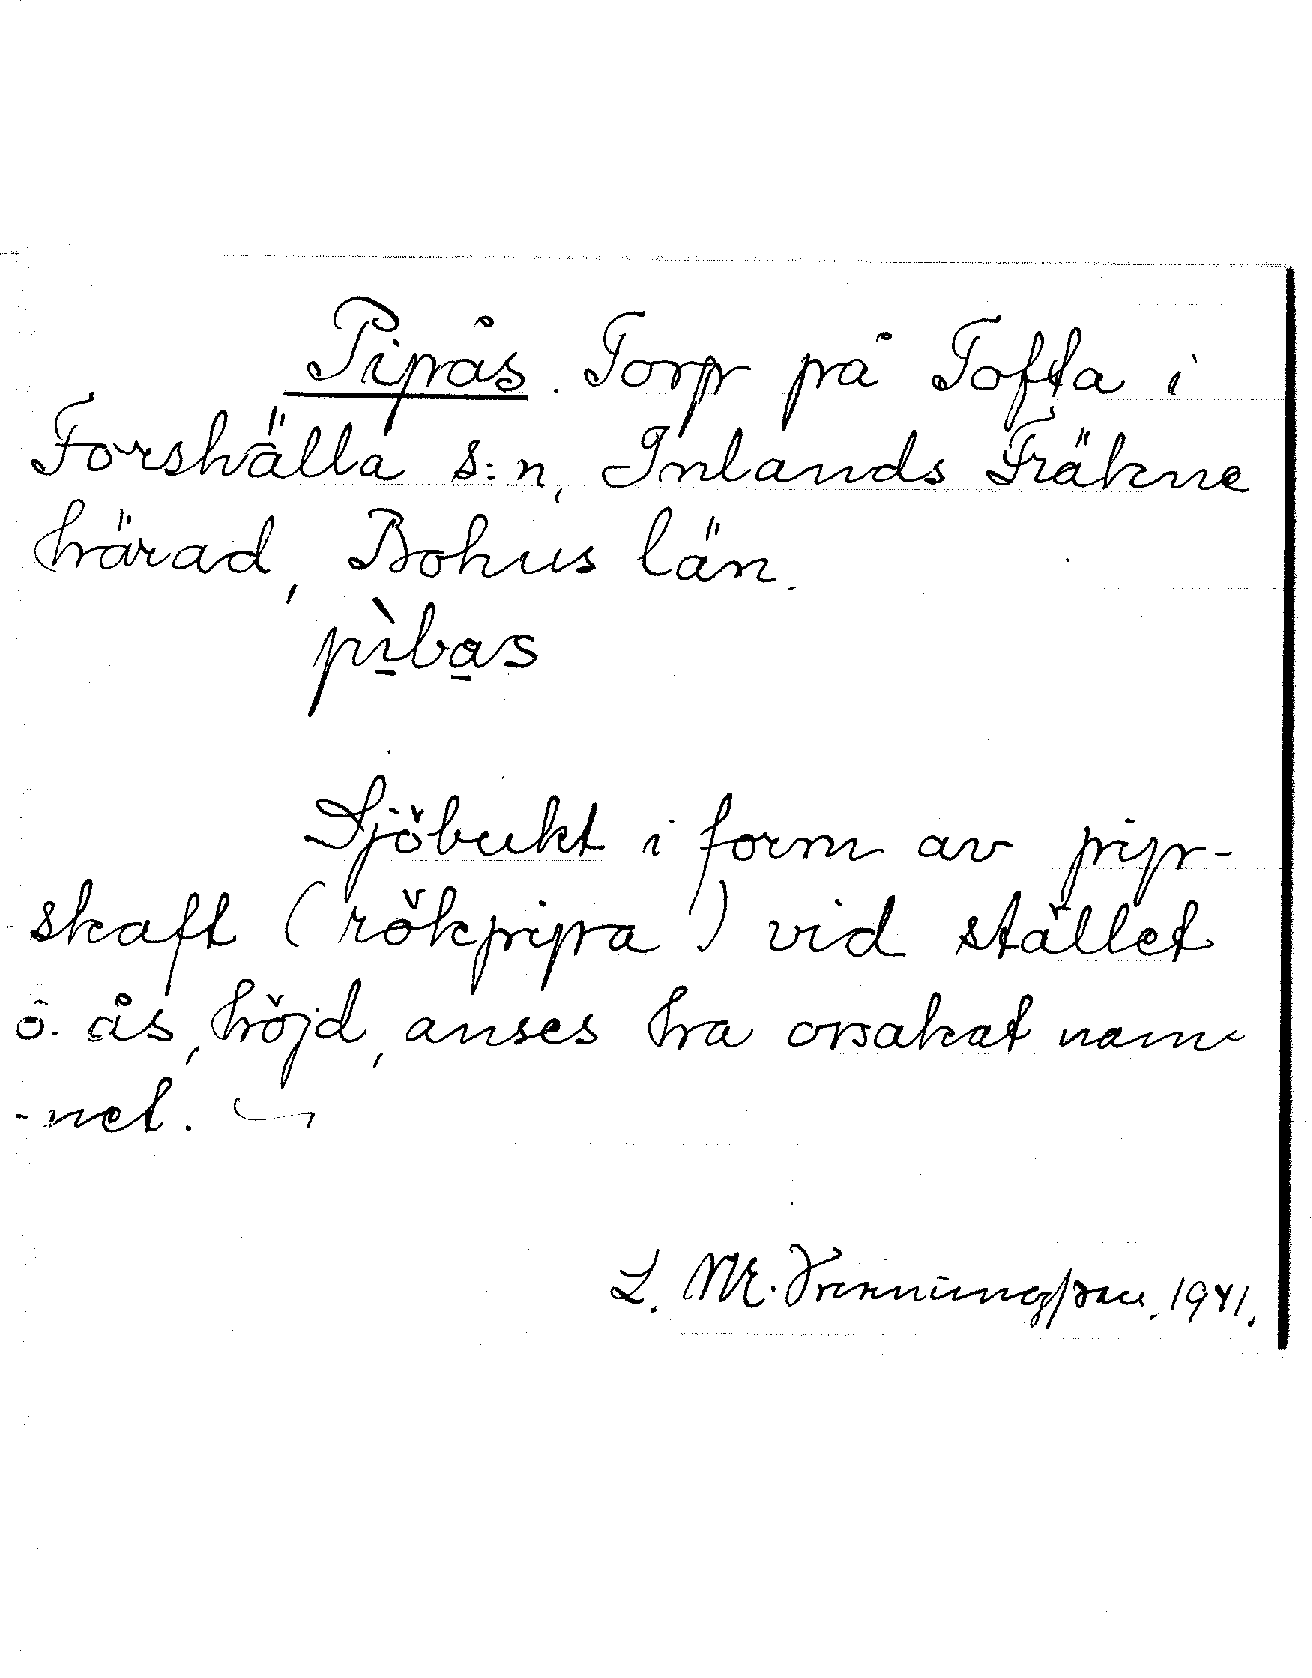 Pipås. Torp på Tofta i
Forshälla s:n, Inlands Fräkne
härad, Bohus län.
pìbas
Sjöbukt i form av pip-
skaft (rökpipa) vid stället
o. ås, höjd, anses ha orsakat nam-
-net.
L. M. 1941.